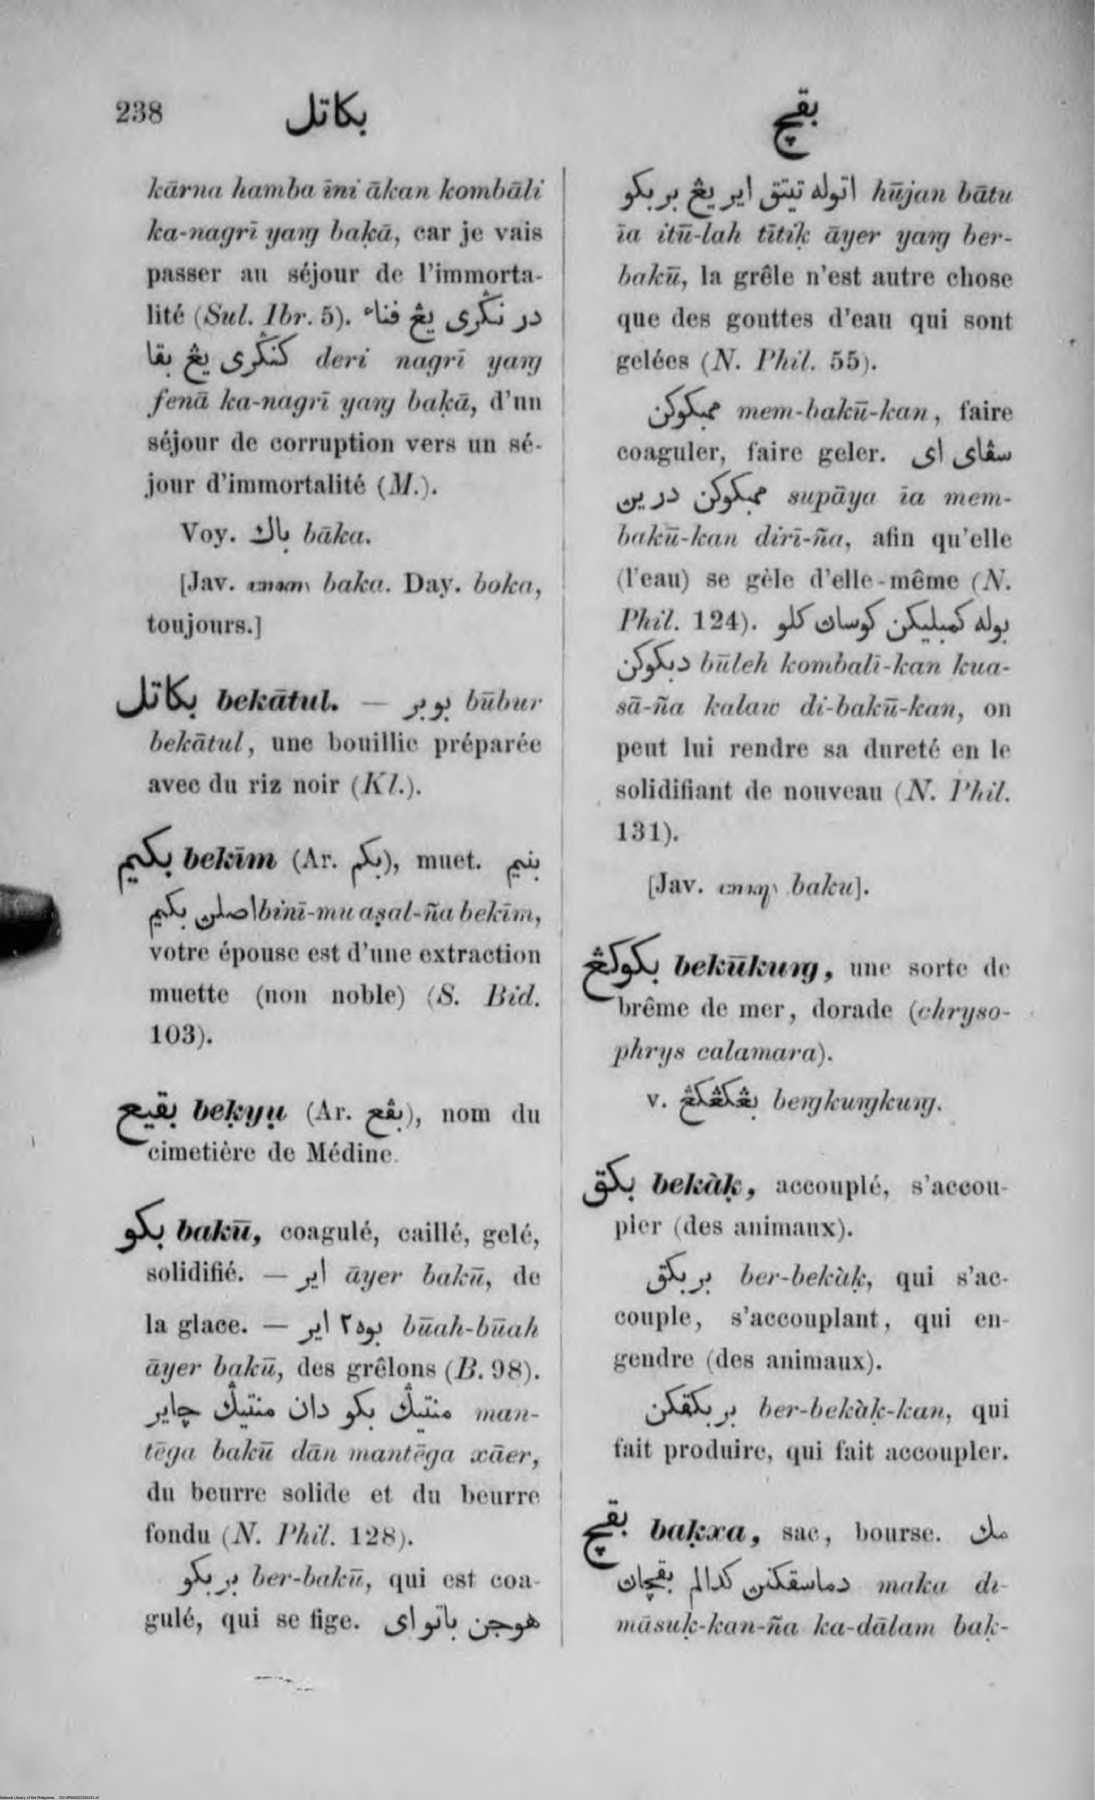 238
بكاتل
بقچ
kārna hamba īni ākan kombāli
ka-nagrī yaŋ baḳā, car je vais
passer au séjour de l'immorta-
lité (Sul. Ibr. 5). در نݢري يڠ فناء
كنݢري يڠ بقا deri nagrī yaŋ
fenā ka-nagrī yaŋ baḳā, d'un
séjour de corruption vers un sé-
jour d'immortalité (M.).
Voy. باك bāka.
[Jav. baka. Day. boka,
toujours.]
بكاتل bekātul. — بوبر būbur
bekātul, une bouillie préparée
avec du riz noir (Kl.).
بكيم bekīm (Ar. بكم), muet. بنيم
اصلن بكيم binī-mu aṣal-ña bekīm,
votre épouse est d'une extraction
muette (non noble) (S. Bid.
103).
بقيع beḳyụ (Ar. بقع), nom du
cimetière de Médine.
بكو bakū, coagulé, caillé, gelé,
solidifié. — اير āyer bakū, de
la glace. — بوه٢ اير būah-būah
āyer bakū, des grêlons (B. 98).
منتيݢ بكو دان منتيݢ چاير man-
tēga bakū dān mantēga xāer,
du beurre solide et du beurre
fondu (N. Phil. 128).
بربكو ber-bakū, qui est coa-
gulé, qui se fige. هوجن باتو اي
اتوله تيتق اير يڠ بربكو hūjan bātu
īa itū-lah tītiḳ āyer yaŋ ber-
bakū, la grêle n'est autre chose
que des gouttes d'eau qui sont
gelées (N. Phil. 55).
ممبكوكن mem-bakū-kan, faire
coaguler, faire geler. سڤاي اي
ممبكوكن درين supāya īa mem-
bakū-kan dirī-ña, afin qu'elle
(l'eau) se gèle d'elle-même (N.
Phil. 124). بوله كمبليكن كوسان كلو
دبكوكن būleh kombalī-kan kua-
sā-ña kalaw di-bakū-kan, on
peut lui rendre sa dureté en le
solidifiant de nouveau (N. Phil.
131).
[Jav. baku].
بكوكڠ bekūkuŋ, une sorte de
brême de mer, dorade (chryso-
phrys calamara).
v. بڠكڠكڠ beŋkuŋkuŋ.
بكق bekàḳ, accouplé, s'accou-
pler (des animaux).
بربكق ber-bekàḳ, qui s'ac-
couple, s'accouplant, qui en-
gendre (des animaux).
بربكقكن ber-bekàḳ-kan, qui
fait produire, qui fait accoupler.
بقچ baḳxa, sac, bourse. مك
دماسقكنن كدالم بقچان maka di-
māsuḳ-kan-ña ka-dālam baḳ-